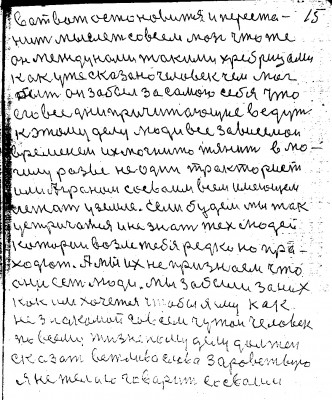 15
ват вот остановится и переста-
нит мыслет совсем мозг что же
он между нами такими хребрицами
как уже сказано человек чем мог
быт он забыл за самаю себя что
его все дни причитающие ведут
к этому делу люди все зависемои
временем их могнито тянит в мо-
гилу разве не один тракторист
или Аграном сосвоим всем имеющем
лежат уземле. Если будем мы так
устричатся и не знат тех людей
которои возле тебя редко но про-
ходют. А мы их не признаем что
они ест люди. мы забыли за них
как им хочется чтобы я ему как
не знакомой совсем чужои человек
по всему жизненому делу должен
сказат вежливо слова здравствую
я не желаю говорит со своими